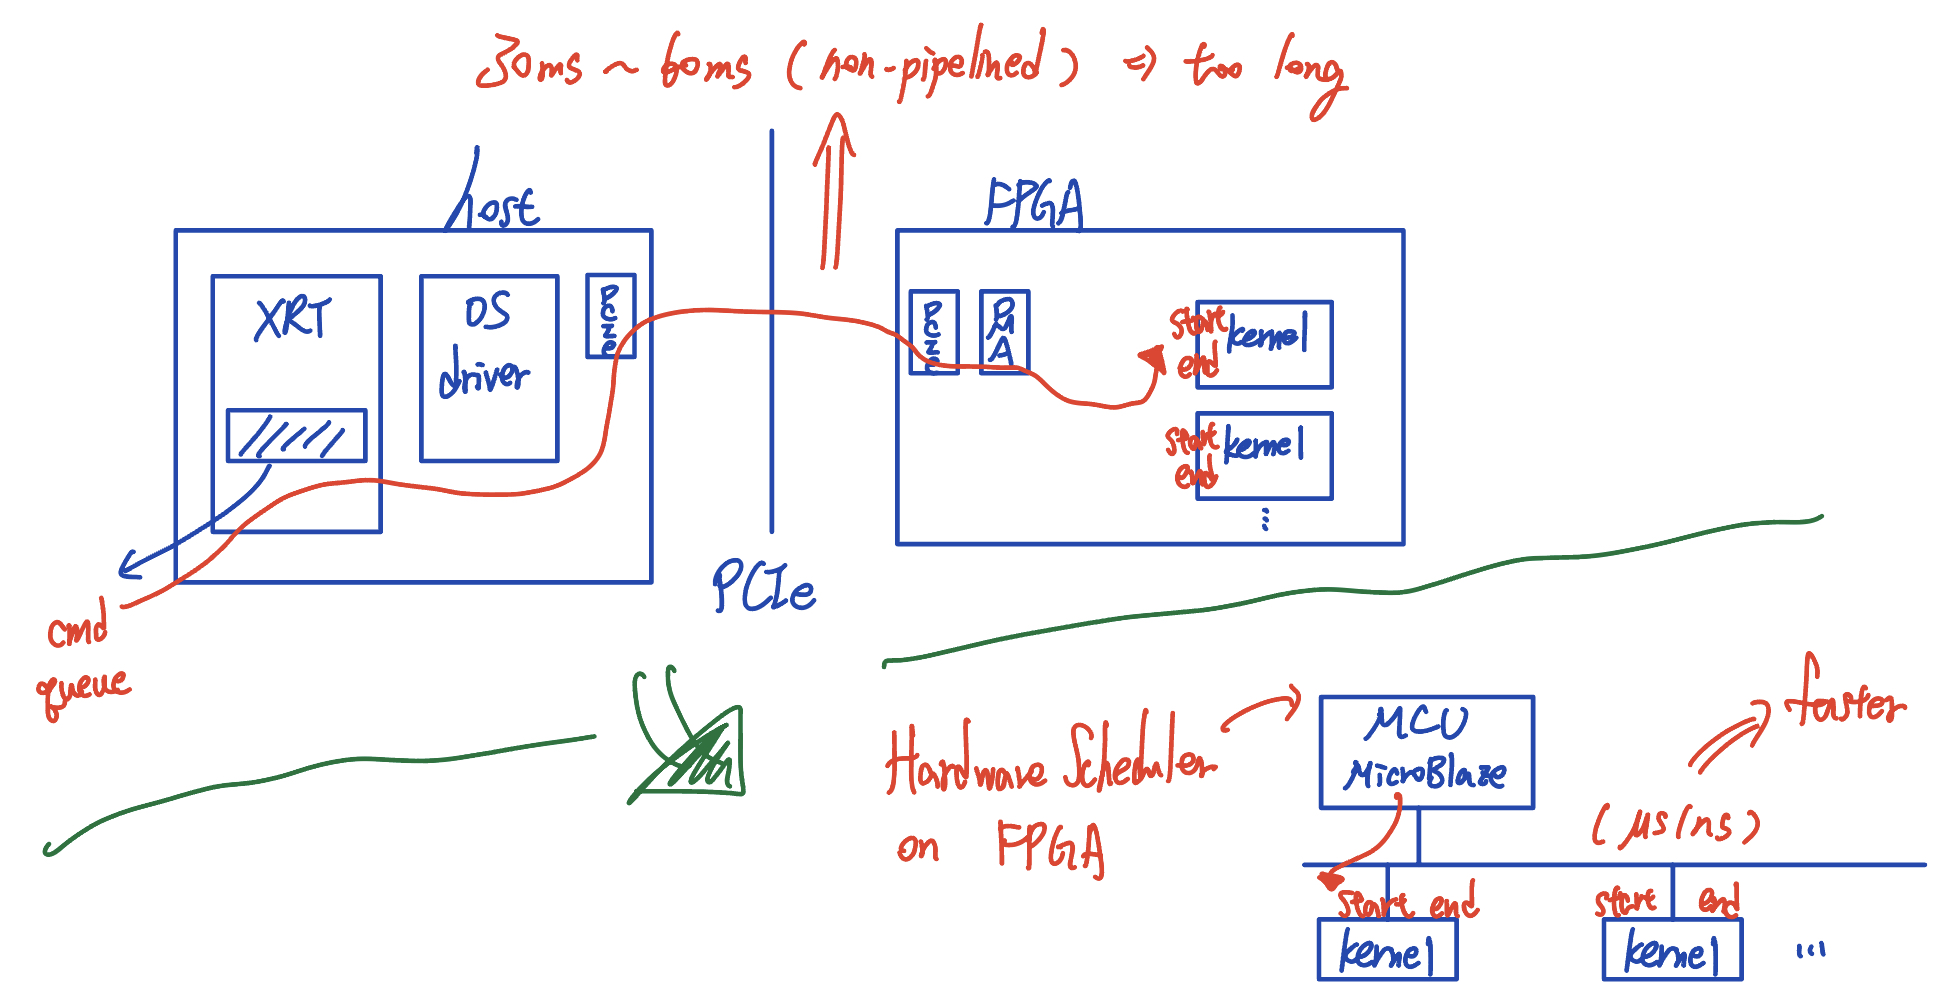 30ms ~ 60ms (non-pipelined) => too long
host
FPGA
XRT
OS
driver
PCIe
PCIe
DMA
start
end
kernel
start
end
kernel
⋮
PCIe
cmd
queue
Hardware Scheduler
on FPGA
MCU
MicroBlaze
faster
(μs/ns)
start end
start end
kernel
kernel
...